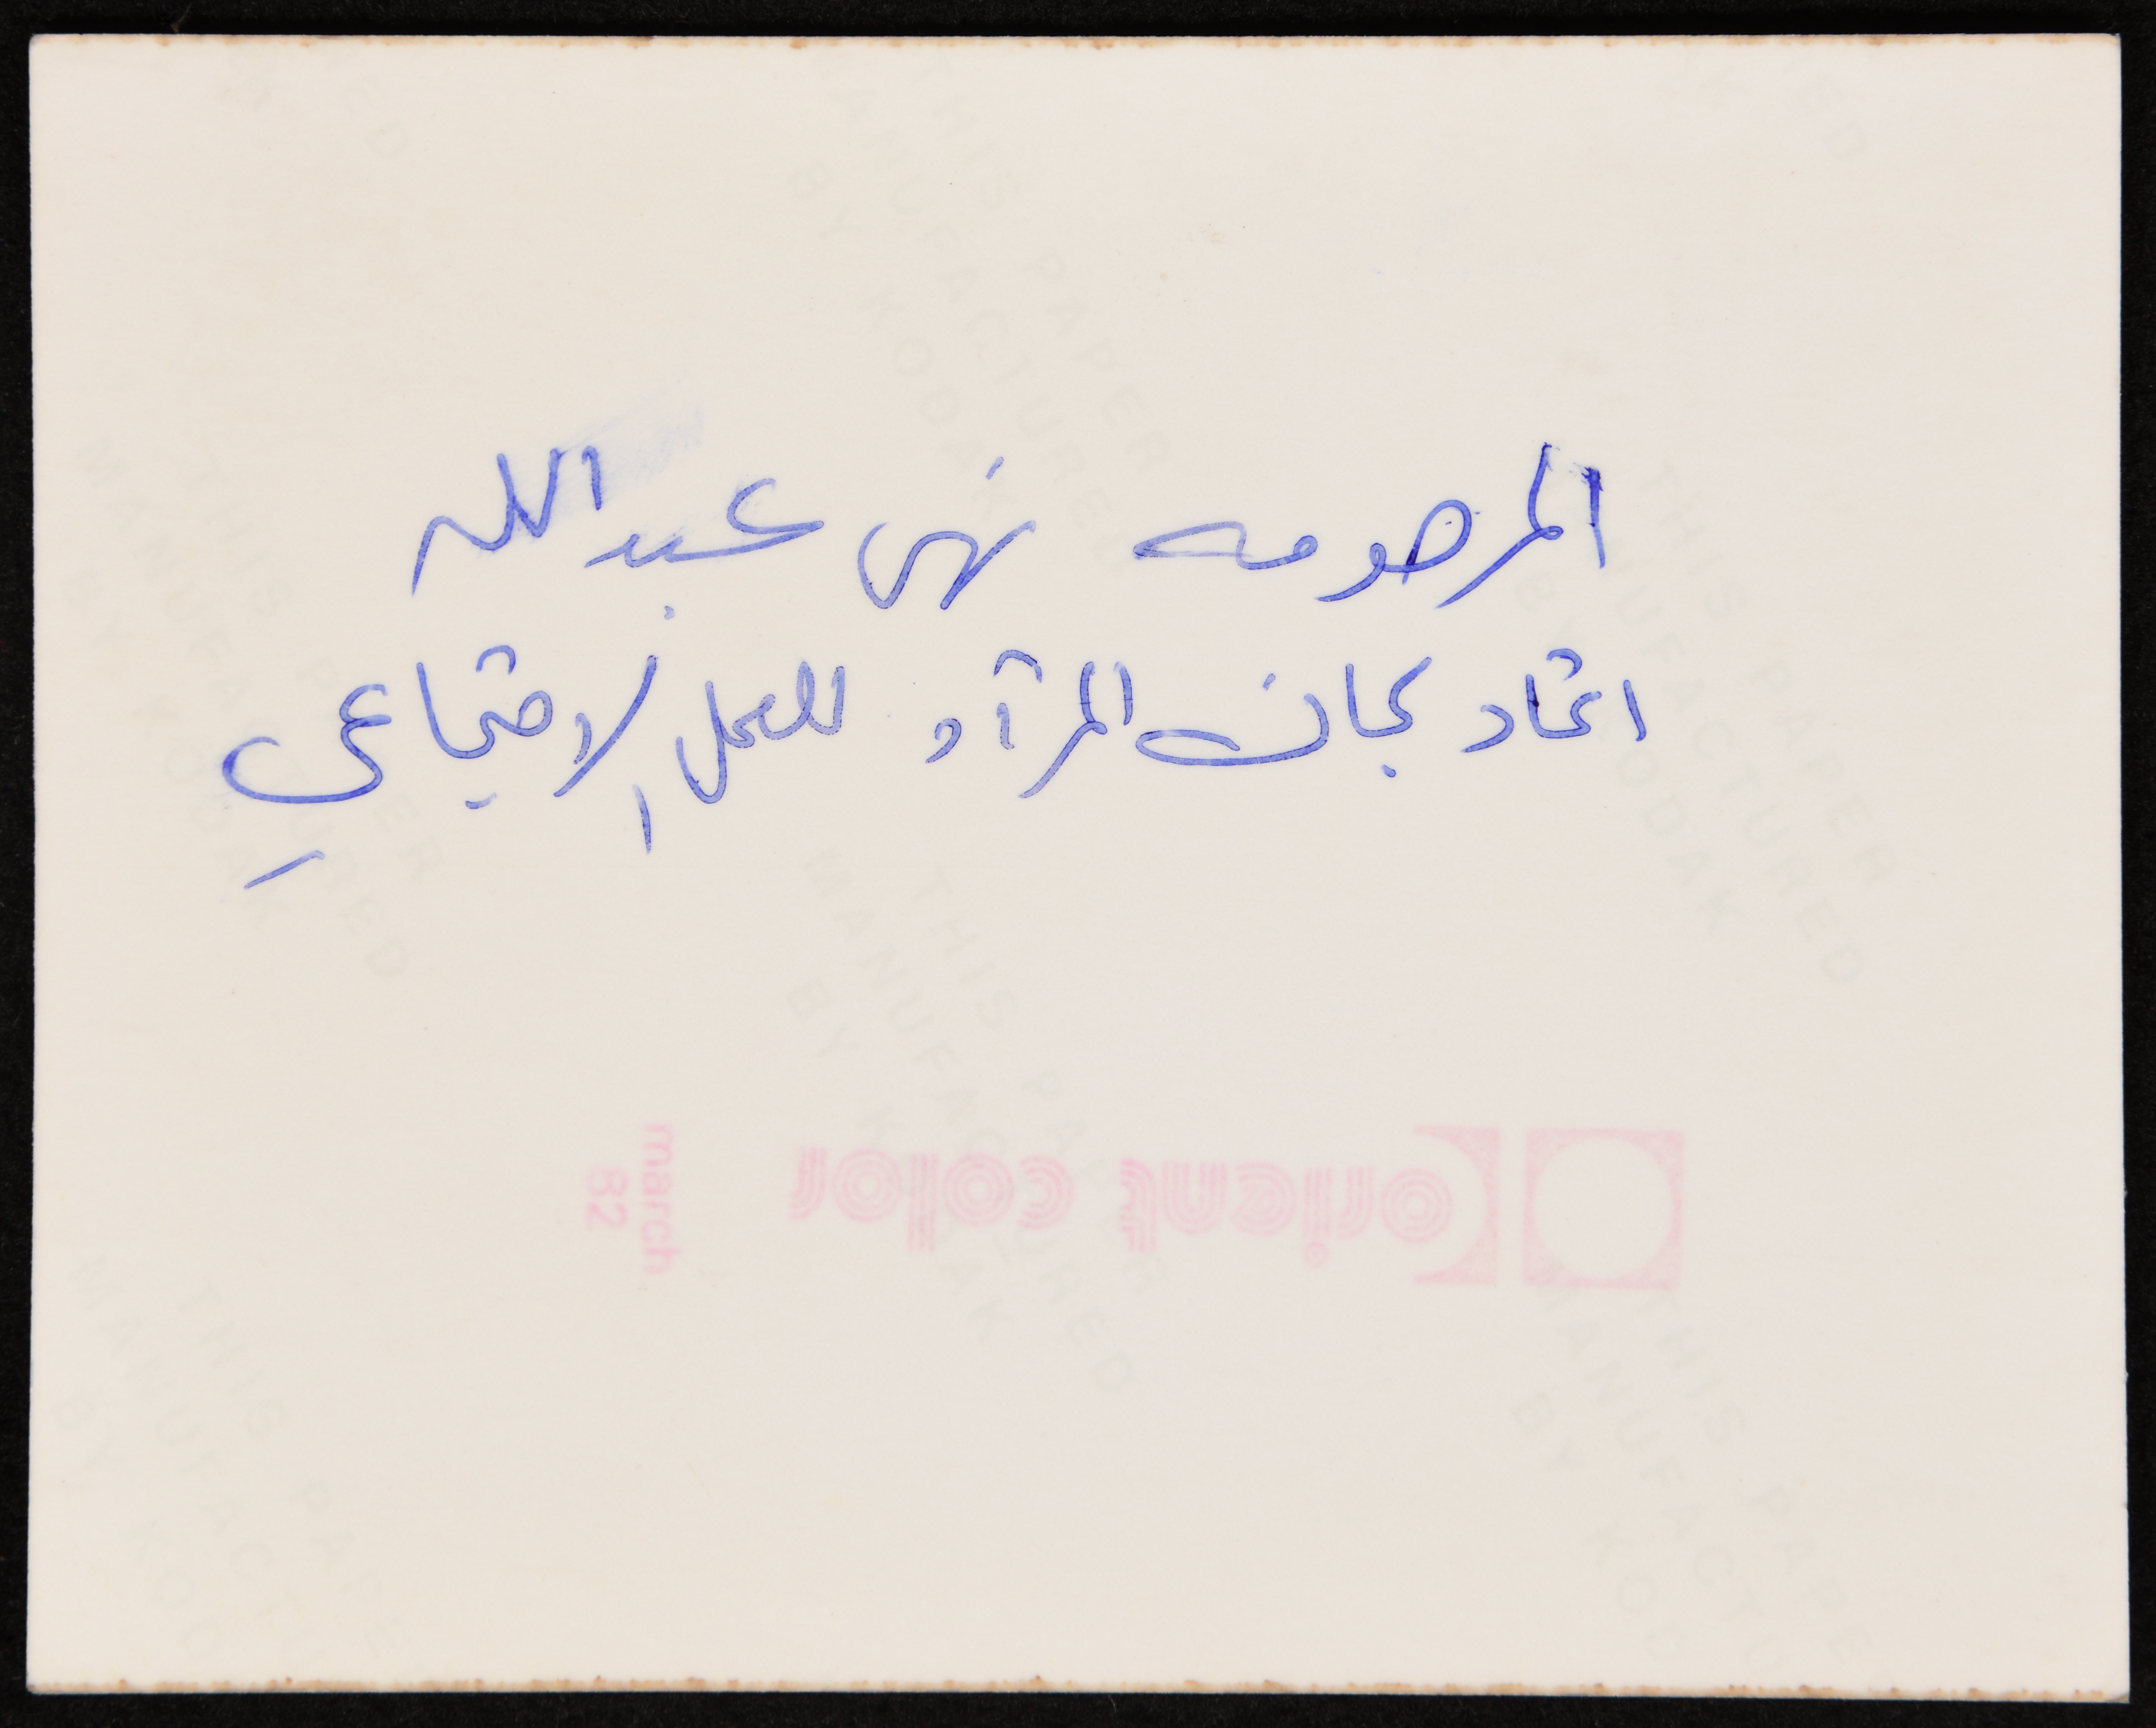 المرحومه نهى عبد الله
اتحاد لجان المرآه للعمل الاجتماعي
orient color
march
82
THIS PAPER
MANUFACTURED
BY KODAK